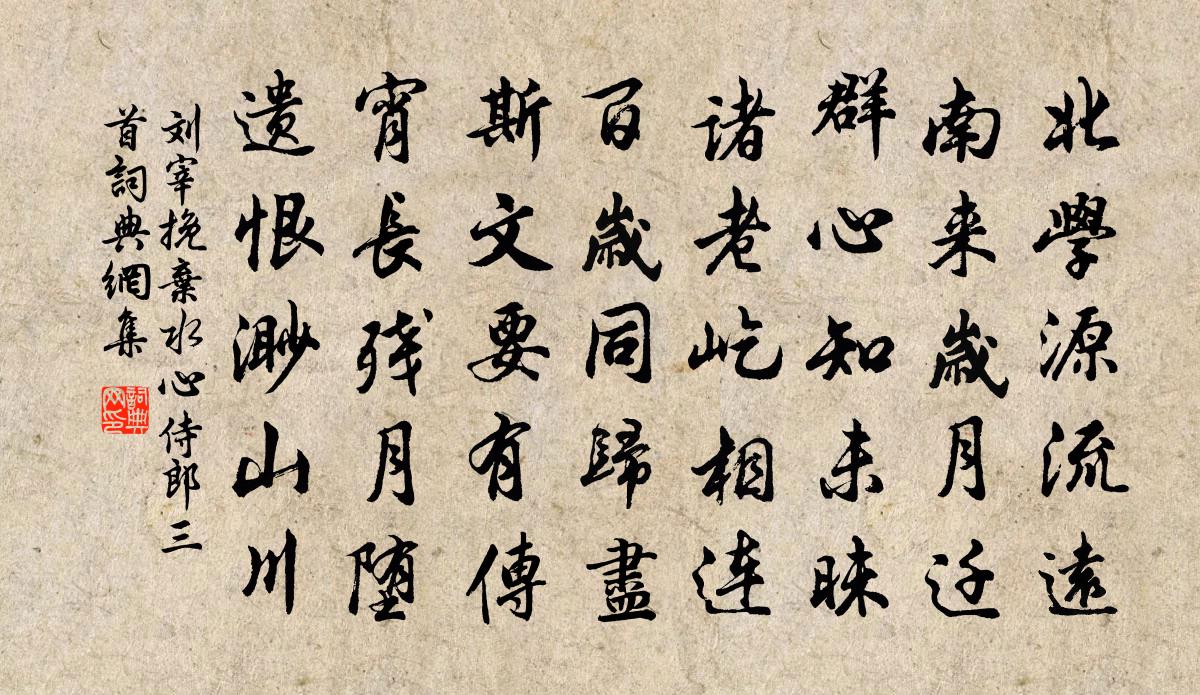 北學源流遠
南来歲月迁
群心知未昧
诸老屹相连
百歲同歸盡
斯文要有傳
宵長残月堕
遗恨渺山川
刘宰挽棄水心侍郎三
首詞典網集
詞典
网印